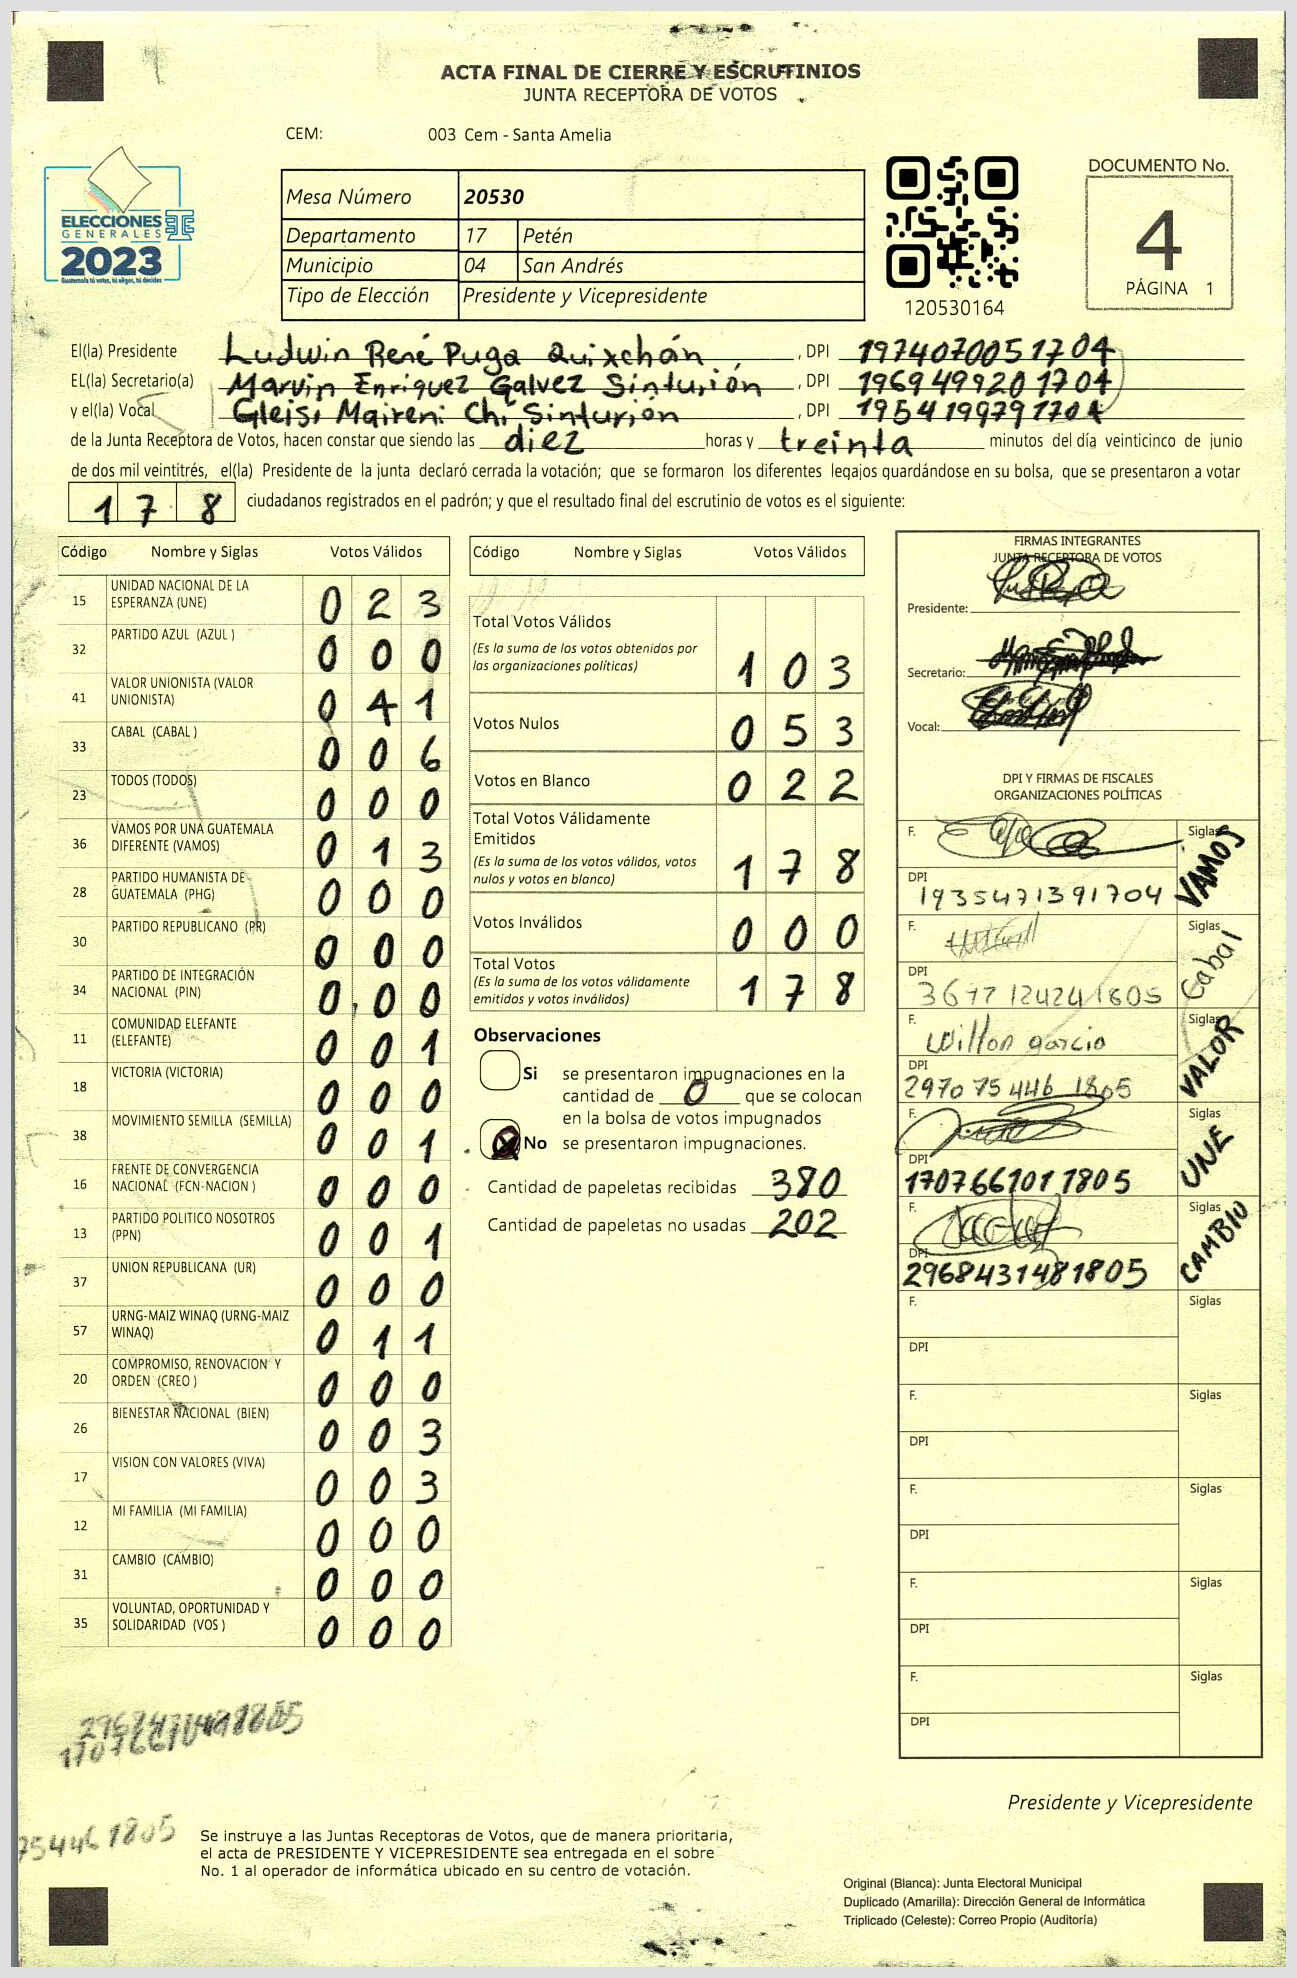 ACTA FINAL DE CIERRE Y ESCRUTINIOS
JUNTA RECEPTORA DE VOTOS
CEM: 003 Cem - Santa Amelia
ELECCIONES
GENERALES
2023
Guatemala tú votas, tú eliges, tú decides
Mesa Número 20530
Departamento 17 Petén
Municipio 04 San Andrés
Tipo de Elección Presidente y Vicepresidente
120530164
DOCUMENTO No.
4
PÁGINA 1
El(la) Presidente Ludwin René Puga Quixchán, DPI 1974070051704
EL(la) Secretario(a) Marvin Enriquez Galvez Sinturión, DPI 1969499201704
y el(la) Vocal Gleisi Maireni Chi Sinturión, DPI 1954199791704
de la Junta Receptora de Votos, hacen constar que siendo las diez horas y treinta minutos del día veinticinco de junio
de dos mil veintitrés, el(la) Presidente de la junta declaró cerrada la votación; que se formaron los diferentes legajos guardándose en su bolsa, que se presentaron a votar
1 7 8 ciudadanos registrados en el padrón; y que el resultado final del escrutinio de votos es el siguiente:
Código Nombre y Siglas Votos Válidos
15 UNIDAD NACIONAL DE LA ESPERANZA (UNE) 0 2 3
32 PARTIDO AZUL (AZUL ) 0 0 0
41 VALOR UNIONISTA (VALOR UNIONISTA) 0 4 1
33 CABAL (CABAL ) 0 0 6
23 TODOS (TODOS) 0 0 0
36 VAMOS POR UNA GUATEMALA DIFERENTE (VAMOS) 0 1 3
28 PARTIDO HUMANISTA DE GUATEMALA (PHG) 0 0 0
30 PARTIDO REPUBLICANO (PR) 0 0 0
34 PARTIDO DE INTEGRACIÓN NACIONAL (PIN) 0 0 0
11 COMUNIDAD ELEFANTE (ELEFANTE) 0 0 1
18 VICTORIA (VICTORIA) 0 0 0
38 MOVIMIENTO SEMILLA (SEMILLA) 0 0 1
16 FRENTE DE CONVERGENCIA NACIONAL (FCN-NACION ) 0 0 0
13 PARTIDO POLITICO NOSOTROS (PPN) 0 0 1
37 UNION REPUBLICANA (UR) 0 0 0
57 URNG-MAIZ WINAQ (URNG-MAIZ WINAQ) 0 1 1
20 COMPROMISO, RENOVACION Y ORDEN (CREO ) 0 0 0
26 BIENESTAR NACIONAL (BIEN) 0 0 3
17 VISION CON VALORES (VIVA) 0 0 3
12 MI FAMILIA (MI FAMILIA) 0 0 0
31 CAMBIO (CAMBIO) 0 0 0
35 VOLUNTAD, OPORTUNIDAD Y SOLIDARIDAD (VOS ) 0 0 0
Código Nombre y Siglas Votos Válidos
Total Votos Válidos
(Es la suma de los votos obtenidos por
las organizaciones políticas) 1 0 3
Votos Nulos 0 5 3
Votos en Blanco 0 2 2
Total Votos Válidamente
Emitidos
(Es la suma de los votos válidos, votos
nulos y votos en blanco) 1 7 8
Votos Inválidos 0 0 0
Total Votos
(Es la suma de los votos válidamente
emitidos y votos inválidos) 1 7 8
Observaciones
Si se presentaron impugnaciones en la
cantidad de 0 que se colocan
en la bolsa de votos impugnados
No se presentaron impugnaciones.
Cantidad de papeletas recibidas 380
Cantidad de papeletas no usadas 202
FIRMAS INTEGRANTES
JUNTA RECEPTORA DE VOTOS
Presidente:
Secretario:
Vocal:
DPI Y FIRMAS DE FISCALES
ORGANIZACIONES POLÍTICAS
F. Siglas VAMOS
DPI 1935471391704
F. Siglas Cabal
DPI 3697124241805
F. Willon garcia Siglas VALOR
DPI 2970 75446 1805
F. Siglas UNE
DPI 1707661011805
F. Siglas CAMBIO
DPI 2968431481805
F. Siglas
DPI
F. Siglas
DPI
F. Siglas
DPI
F. Siglas
DPI
F. Siglas
DPI
754461805
Presidente y Vicepresidente
Se instruye a las Juntas Receptoras de Votos, que de manera prioritaria,
el acta de PRESIDENTE Y VICEPRESIDENTE sea entregada en el sobre
No. 1 al operador de informática ubicado en su centro de votación.
Original (Blanca): Junta Electoral Municipal
Duplicado (Amarilla): Dirección General de Informática
Triplicado (Celeste): Correo Propio (Auditoría)